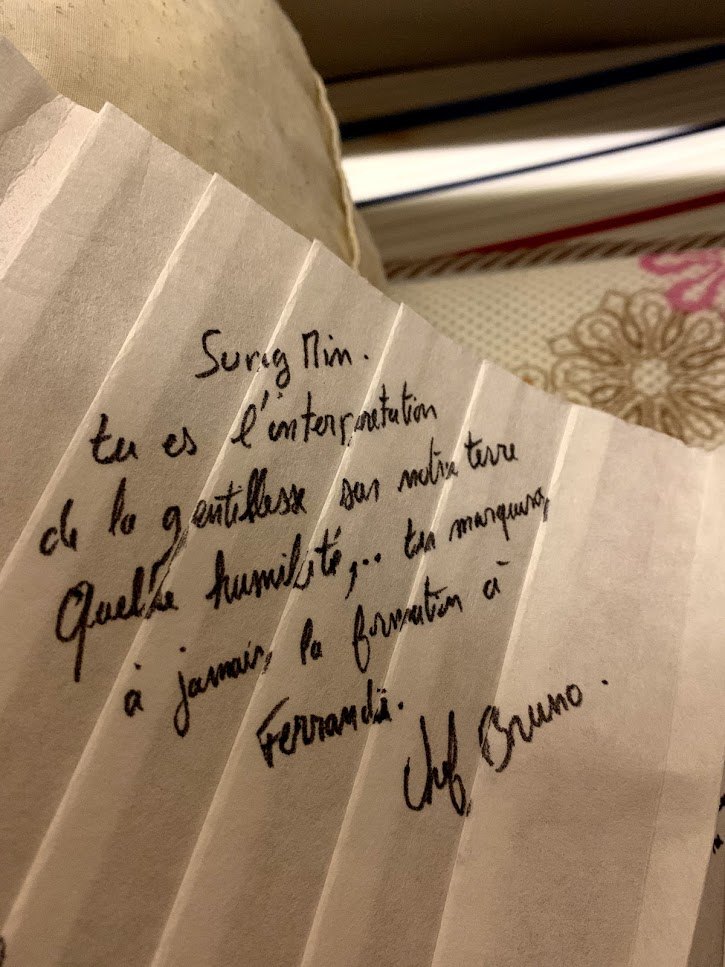 Sung Min.
tu es l'interprétation
de la gentillesse sur notre terre
Quelle humilité,... tu marqueras
à jamais la formation à
Ferrandi.
Chef Bruno.